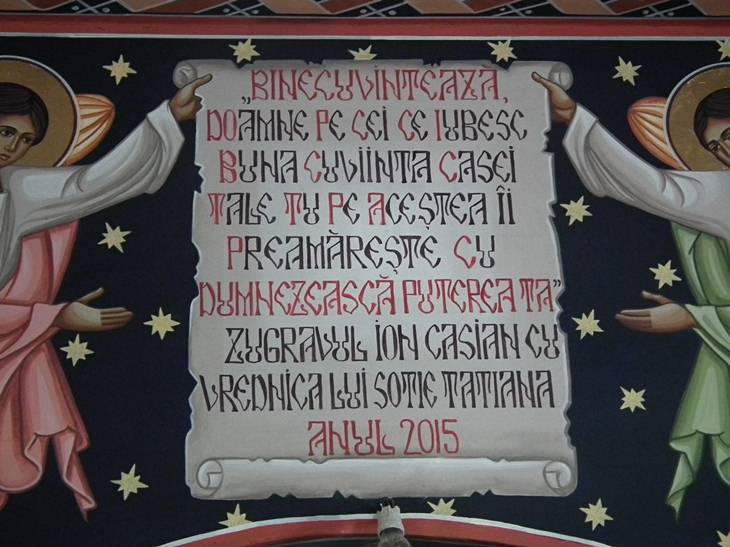 „BINECUVINTEAZĂ,
DOAMNE PE CEI CE IUBESC
BUNA CUVIINTA CASEI
TALE TU PE ACEȘTEA ÎI
PREAMĂREȘTE CU
DUMNEZEASCĂ PUTEREA TA”
ZUGRAVUL ION CASIAN CU
VREDNICA LUI SOTIE TATIANA
ANUL 2015